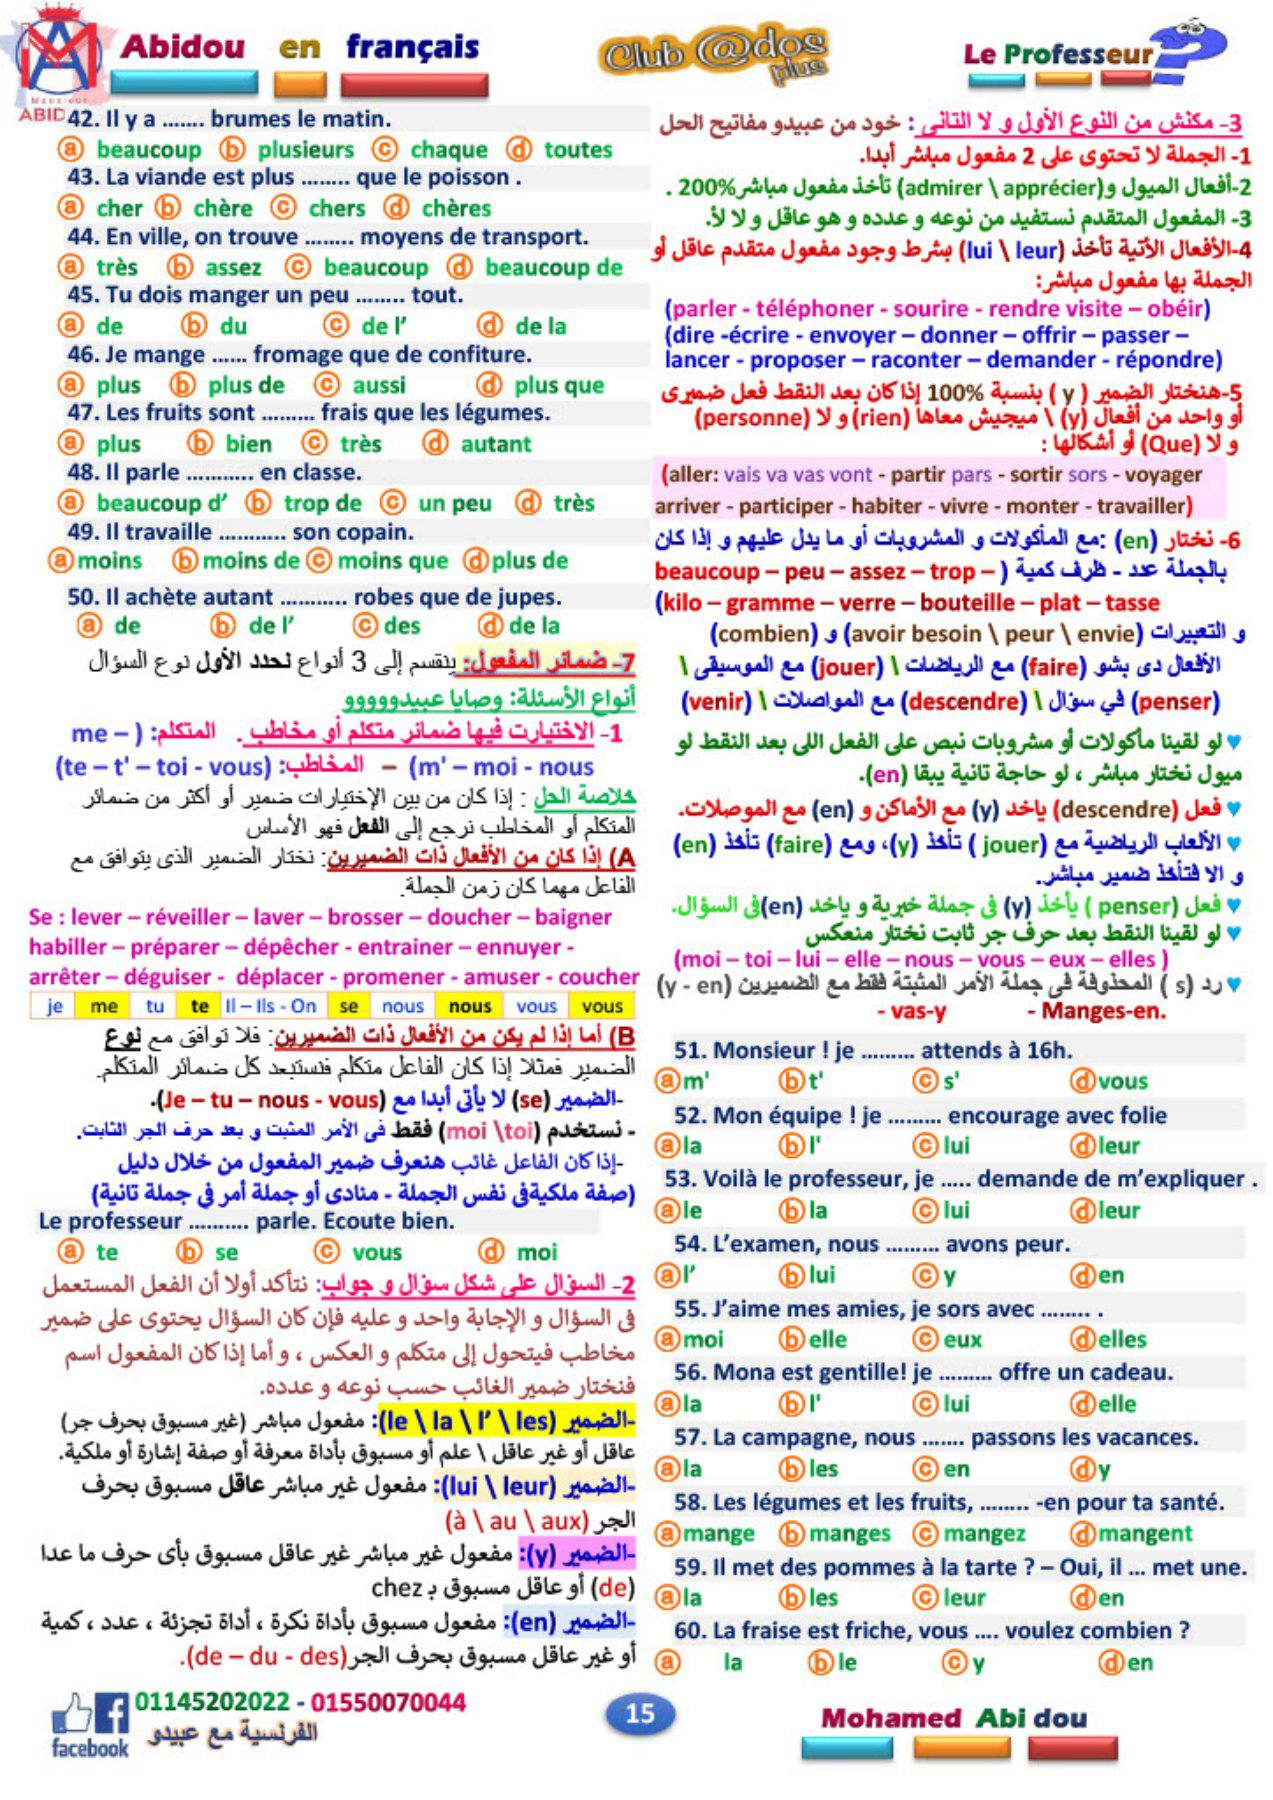 Abidou en français
Club @dos plus
Le Professeur
Monsieur
ABID
42. Il y a ....... brumes le matin.
ⓐ beaucoup ⓑ plusieurs ⓒ chaque ⓓ toutes
43. La viande est plus ........ que le poisson .
ⓐ cher ⓑ chère ⓒ chers ⓓ chères
44. En ville, on trouve ........ moyens de transport.
ⓐ très ⓑ assez ⓒ beaucoup ⓓ beaucoup de
45. Tu dois manger un peu ........ tout.
ⓐ de ⓑ du ⓒ de l’ ⓓ de la
46. Je mange ...... fromage que de confiture.
ⓐ plus ⓑ plus de ⓒ aussi ⓓ plus que
47. Les fruits sont ......... frais que les légumes.
ⓐ plus ⓑ bien ⓒ très ⓓ autant
48. Il parle ........... en classe.
ⓐ beaucoup d’ ⓑ trop de ⓒ un peu ⓓ très
49. Il travaille ........... son copain.
ⓐ moins ⓑ moins de ⓒ moins que ⓓ plus de
50. Il achète autant ........... robes que de jupes.
ⓐ de ⓑ de l’ ⓒ des ⓓ de la
7- ضمائر المفعول: ينقسم إلى 3 أنواع نحدد الأول نوع السؤال
أنواع الأسئلة: وصايا عبيدووووو
1- الاختيارت فيها ضمائر متكلم أو مخاطب . المتكلم: ( me –
m' – moi - nous) – المخاطب: (te – t' – toi - vous)
خلاصة الحل : إذا كان من بين الإختيارات ضمير أو أكثر من ضمائر
المتكلم أو المخاطب نرجع إلى الفعل فهو الأساس
A) إذا كان من الأفعال ذات الضميرين: نختار الضمير الذى يتوافق مع
الفاعل مهما كان زمن الجملة.
Se : lever – réveiller – laver – brosser – doucher – baigner
habiller – préparer – dépêcher - entrainer – ennuyer -
arrêter – déguiser - déplacer - promener - amuser - coucher
je me tu te Il – Ils - On se nous nous vous vous
B) أما إذا لم يكن من الأفعال ذات الضميرين: فلا توافق مع نوع
الضمير فمثلا إذا كان الفاعل متكلم فنستبعد كل ضمائر المتكلم.
-الضمير (se) لا يأتى أبدا مع (Je – tu – nous - vous).
- نستخدم (moi \toi) فقط فى الأمر المثبت و بعد حرف الجر الثابت.
-إذا كان الفاعل غائب هنعرف ضمير المفعول من خلال دليل
(صفة ملكيةفى نفس الجملة - منادى أو جملة أمر فى جملة تانية)
Le professeur .......... parle. Ecoute bien.
ⓐ te ⓑ se ⓒ vous ⓓ moi
2- السؤال على شكل سؤال و جواب: نتأكد أولا أن الفعل المستعمل
فى السؤال و الإجابة واحد و عليه فإن كان السؤال يحتوى على ضمير
مخاطب فيتحول إلى متكلم و العكس ، و أما إذا كان المفعول اسم
فنختار ضمير الغائب حسب نوعه و عدده.
-الضمير (le \ la \ l’ \ les): مفعول مباشر (غير مسبوق بحرف جر)
عاقل أو غير عاقل \ علم أو مسبوق بأداة معرفة أو صفة إشارة أو ملكية.
-الضمير (lui \ leur): مفعول غير مباشر عاقل مسبوق بحرف
الجر (à \ au \ aux)
-الضمير (y): مفعول غير مباشر غير عاقل مسبوق بأى حرف ما عدا
(de) أو عاقل مسبوق بـ chez
-الضمير (en): مفعول مسبوق بأداة نكرة ، أداة تجزئة ، عدد ، كمية
أو غير عاقل مسبوق بحرف الجر(de – du - des).
3- مكنش من النوع الأول و لا التانى : خود من عبيدو مفاتيح الحل
1- الجملة لا تحتوى على 2 مفعول مباشر أبدا.
2-أفعال الميول و(admirer \ apprécier) تأخذ مفعول مباشر%200 .
3- المفعول المتقدم نستفيد من نوعه و عدده و هو عاقل و لا لأ.
4-الأفعال الأتية تأخذ (lui \ leur) بشرط وجود مفعول متقدم عاقل أو
الجملة بها مفعول مباشر:
(parler - téléphoner - sourire - rendre visite – obéir)
(dire -écrire - envoyer – donner – offrir – passer –
lancer - proposer – raconter – demander - répondre)
5-هنختار الضمير ( y ) بنسبة %100 إذا كان بعد النقط فعل ضميرى
أو واحد من أفعال (y) \ ميجيش معاها (rien) و لا (personne)
و لا (Que) أو أشكالها :
(aller: vais va vas vont - partir pars - sortir sors - voyager
arriver - participer - habiter - vivre - monter - travailler)
6- نختار (en) :مع المأكولات و المشروبات أو ما يدل عليهم و إذا كان
بالجملة عدد - ظرف كمية ( beaucoup – peu – assez – trop –
(kilo – gramme – verre – bouteille – plat – tasse
و التعبيرات (avoir besoin \ peur \ envie) و (combien)
الأفعال دى بشو (faire) مع الرياضات \ (jouer) مع الموسيقى \
(penser) في سؤال \ (descendre) مع المواصلات \ (venir)
♥ لو لقينا مأكولات أو مشروبات نبص على الفعل اللى بعد النقط لو
ميول نختار مباشر ، لو حاجة تانية يبقا (en).
♥ فعل (descendre) ياخد (y) مع الأماكن و (en) مع الموصلات.
♥ الألعاب الرياضية مع (jouer ) تأخذ (y)، ومع (faire) تأخذ (en)
و الا فتأخذ ضمير مباشر.
♥ فعل (penser ) يأخذ (y) فى جملة خبرية و ياخد (en)فى السؤال.
♥ لو لقينا النقط بعد حرف جر ثابت نختار منعكس
(moi – toi – lui – elle – nous – vous – eux – elles )
♥ رد (s ) المحذوفة فى جملة الأمر المثبتة فقط مع الضميرين (y - en)
- vas-y - Manges-en.
51. Monsieur ! je ......... attends à 16h.
ⓐ m' ⓑ t' ⓒ s' ⓓ vous
52. Mon équipe ! je ......... encourage avec folie
ⓐ la ⓑ l' ⓒ lui ⓓ leur
53. Voilà le professeur, je ..... demande de m’expliquer .
ⓐ le ⓑ la ⓒ lui ⓓ leur
54. L’examen, nous ......... avons peur.
ⓐ l’ ⓑ lui ⓒ y ⓓ en
55. J’aime mes amies, je sors avec ........ .
ⓐ moi ⓑ elle ⓒ eux ⓓ elles
56. Mona est gentille! je ......... offre un cadeau.
ⓐ la ⓑ l' ⓒ lui ⓓ elle
57. La campagne, nous ....... passons les vacances.
ⓐ la ⓑ les ⓒ en ⓓ y
58. Les légumes et les fruits, ........ -en pour ta santé.
ⓐ mange ⓑ manges ⓒ mangez ⓓ mangent
59. Il met des pommes à la tarte ? – Oui, il ... met une.
ⓐ la ⓑ les ⓒ leur ⓓ en
60. La fraise est friche, vous .... voulez combien ?
ⓐ la ⓑ le ⓒ y ⓓ en
facebook
01145202022 - 01550070044
الفرنسية مع عبيدو
15
Mohamed Abi dou